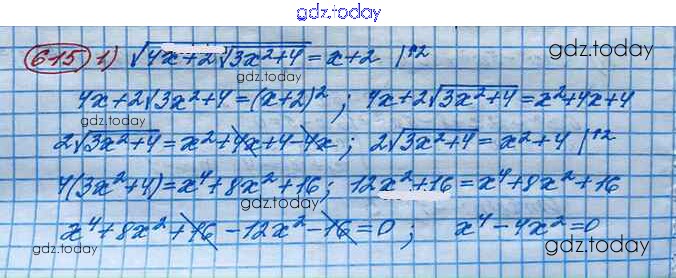 gdz.today
gdz.today
615 1) √(4x+2√(3x²+4)) = x+2 |↑2
gdz.today
gdz.today
4x+2√3x²+4=(x+2)²; 4x+2√(3x²+4)=x²+4x+4
gdz.today
gdz.today
2√(3x²+4)=x²+4x+4-4x; 2√(3x²+4)=x²+4 |↑2
gdz.today
4(3x²+4)=x⁴+8x²+16; 12x²+16=x⁴+8x²+16
gdz.today
gdz.today
x⁴+8x²+16-12x²-16=0; x⁴-4x²=0
gdz.today
gdz.today